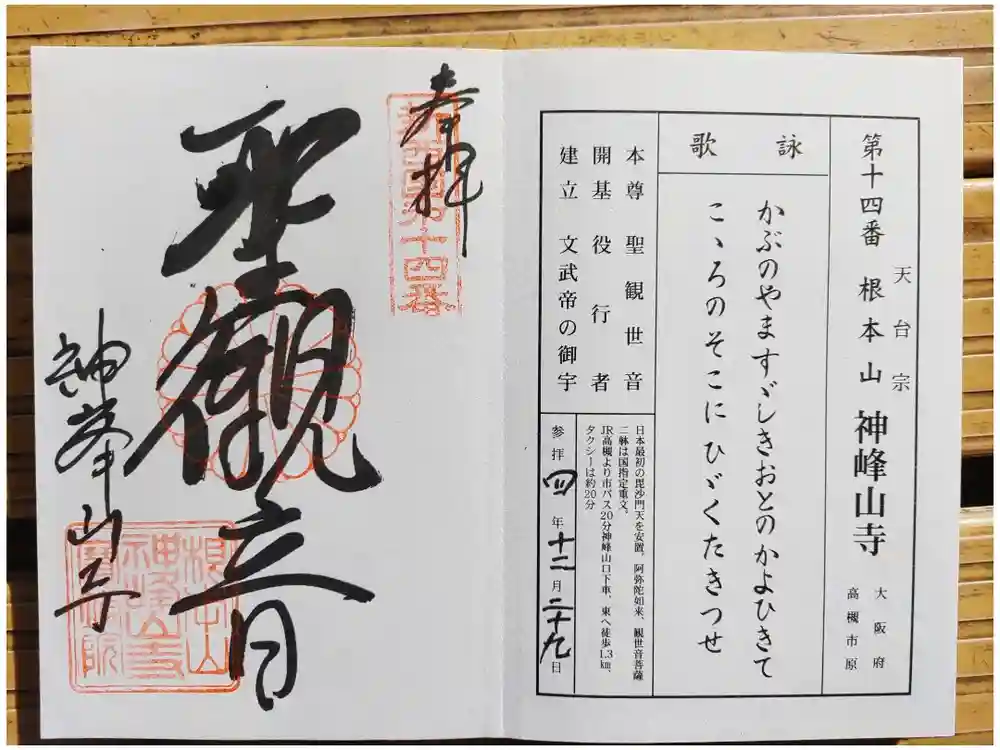 天台宗
第十四番 根本山 神峰山寺
大阪府
高槻市原
詠歌
かぶのやますゞしきおとのかよひきて
こゝろのそこにひゞくたきつせ
本尊 聖観世音
開基 役行者
建立 文武帝の御宇
日本最初の毘沙門天を安置。阿弥陀如来、観世音菩薩
二躰は国指定重文。
JR高槻より市バス20分神峰山口下車、東へ徒歩1.3㎞、
タクシーは約20分
参拝 四年十二月二十九日
奉拝
新西国第十四番
聖観音
神峯山寺
根本山
神峰山寺
寳塔院